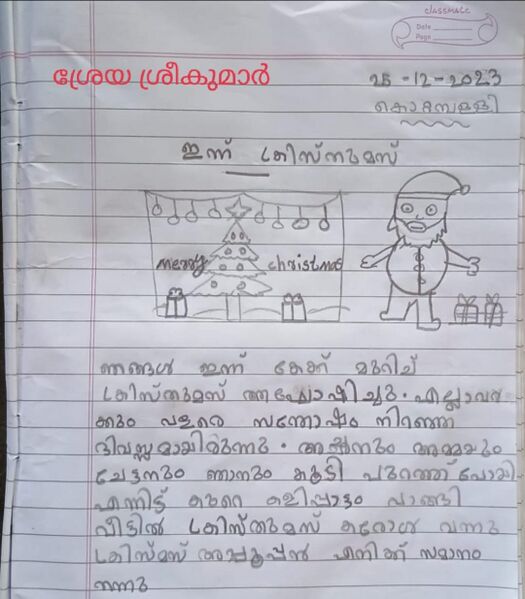 classmate
Date
Page
ശ്രേയ ശ്രീകുമാർ
25-12-2023
ഇന്ന് ക്രിസ്തുമസ്
merry christmas
ഞങ്ങൾ ഇന്ന് കേക്ക് മുറിച്ച്
ക്രിസ്തുമസ് ആഘോഷിച്ചു. എല്ലാവർ
ക്കും വളരെ സന്തോഷം നിറഞ്ഞ
ദിവസ്സമായിരുന്നു. അച്ഛനും അമ്മയും
ചേട്ടനും ഞാനും കൂടി പുറത്ത് പോയി
എന്നിട്ട് കുറെ കളിപ്പാട്ടം വാങ്ങി
വീട്ടിൽ ക്രിസ്തുമസ് കരോൾ വന്നു
ക്രിസ്മസ് അപ്പൂപ്പൻ എനിക്ക് സമാനം
തന്നു